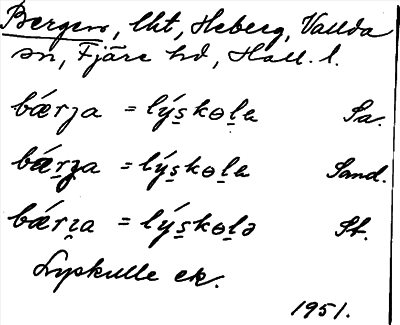 Bergen, lht, Heberg, Vallda
sn, Fjäre hd, Hall. l.
bǽrʒa = lýsk̠ɵl̠a Sa.
bǽrʒa = lýsk̠ɵl̠a Sand.
bǽrɪ̯a = lýsk̠ɵl̠ə St.
Lyskulle ek.
1951.